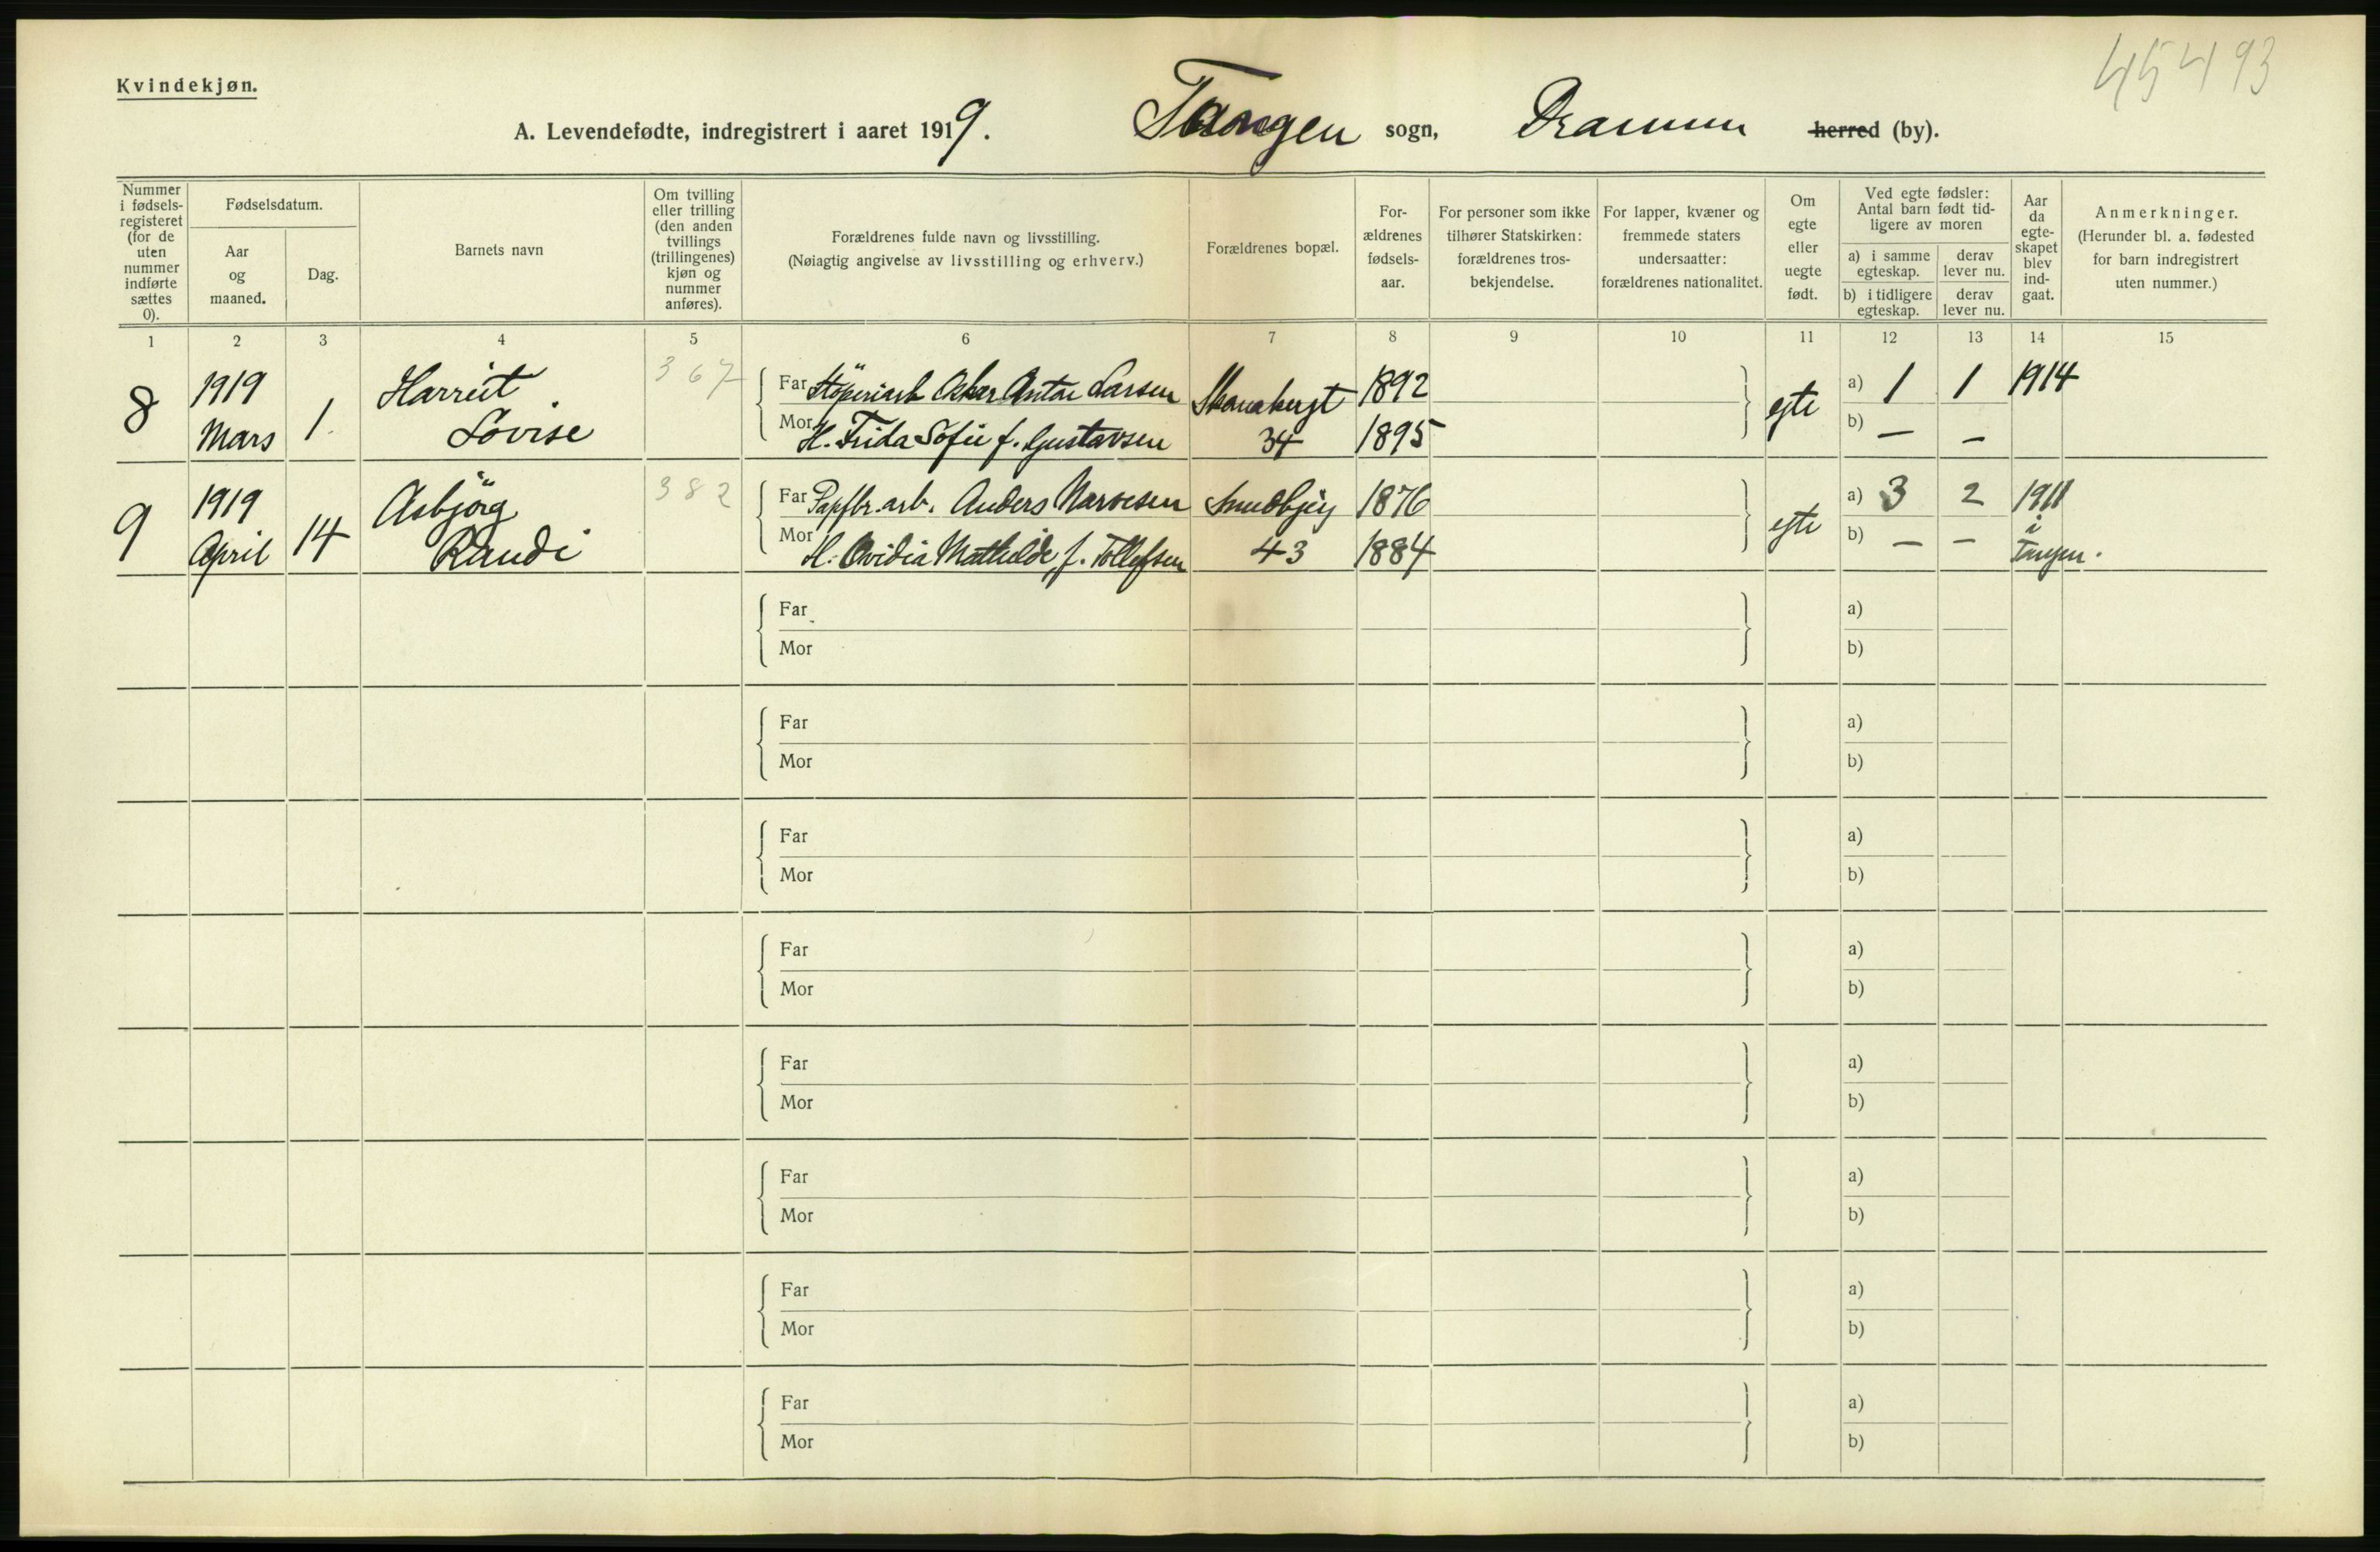 45493
Kvindekjøn.
A. Levendefødte, indregistrert i aaret 1919. Tangen sogn, Drammen herred (by).
Nummer i fødsels-registeret (for de uten nummer indførte sættes 0).
Fødselsdatum.
Aar og maaned.
Dag.
Barnets navn
Om tvilling eller trilling (den anden tvillings (trillingenes) kjøn og nummer anføres).
Forældrenes fulde navn og livsstilling.
(Nøiagtig angivelse av livsstilling og erhverv.)
Forældrenes bopæl.
For-ældrenes fødsels-aar.
For personer som ikke tilhører Statskirken: forældrenes tros-bekjendelse.
For lapper, kvæner og fremmede staters undersaatter: forældrenes nationalitet.
Om egte eller uegte født.
Ved egte fødsler: Antal barn født tid-ligere av moren
a) i samme egteskap.
derav lever nu.
b) i tidligere egteskap.
derav lever nu.
Aar da egte-skapet blev ind-gaat.
Anmerkninger.
(Herunder bl. a. fødested for barn indregistrert uten nummer.)
1 2 3 4 5 6 7 8 9 10 11 12 13 14 15
8 1919 Mars 1. Harriet Lovise 367
Far Støperiarb Oskar Anton Larsen
Mor H. Frida Sofie f. Gustavsen
34
1892
1895
egte
a) 1 1 1914
b) — —
9 1919 April 14 Asbjörg Randi 382
Far Papfbr. arb. Anders Narvesen
Mor H. Ovidia Mathilde, f. Tollefsen
43
1876
1884
egte
a) 3 2 1911
b) — — i Tangen.
Far
Mor
a)
b)
Far
Mor
a)
b)
Far
Mor
a)
b)
Far
Mor
a)
b)
Far
Mor
a)
b)
Far
Mor
a)
b)
Far
Mor
a)
b)
Far
Mor
a)
b)